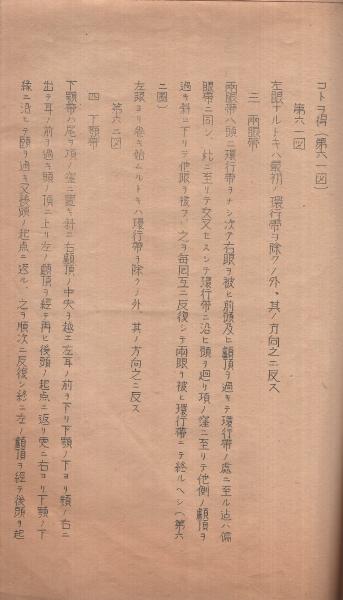 コトヲ得(第六一図)
第六一図
左眼ナルトキハ最初ノ環行帯ヲ除クノ外、其ノ方向之ニ反ス
三 両眼帯
両眼帯ハ頭ニ環行帯ヲナシ次テ右眼ヲ被ヒ前頭及ヒ顱頂ヲ過キテ環行帯ノ處ニ至ル迠ハ偏
眼帯ニ同シ、此ニ至リテ交叉セスシテ環行帯ニ沿ヒ頭ヲ廻リ項ノ窪ニ至リテ他側ノ顱頂ヲ
過キ斜ニ下リテ他眼ヲ被フ、之ヲ毎回互ニ反復シテ両眼ヲ被ヒ環行帯ニテ終ルヘシ(第六
二図)
左眼ヨリ巻キ始ムルトキハ環行帯ヲ除クノ外、其ノ方向之ニ反ス
第六二図
四 下顎帯
下顎帯ハ尾ヲ項ノ窪ニ置キ斜ニ右顱頂ノ中央ヲ越エ左耳ノ前ヲ下リ下顎ノ下ヨリ頬ノ右ニ
出テ耳ノ前ヲ過キ頭ノ頂ニ上リ左ノ顱頂ヲ経テ再ヒ後頭ノ起点ニ返リ更ニ右ヨリ下顎ノ下
縁ニ沿ヒテ頤ヲ過キ又後頭ノ起点ニ返ル、之ヲ順次ニ反復シ終ニ左ノ顱頂ヲ経テ後頭ヲ起